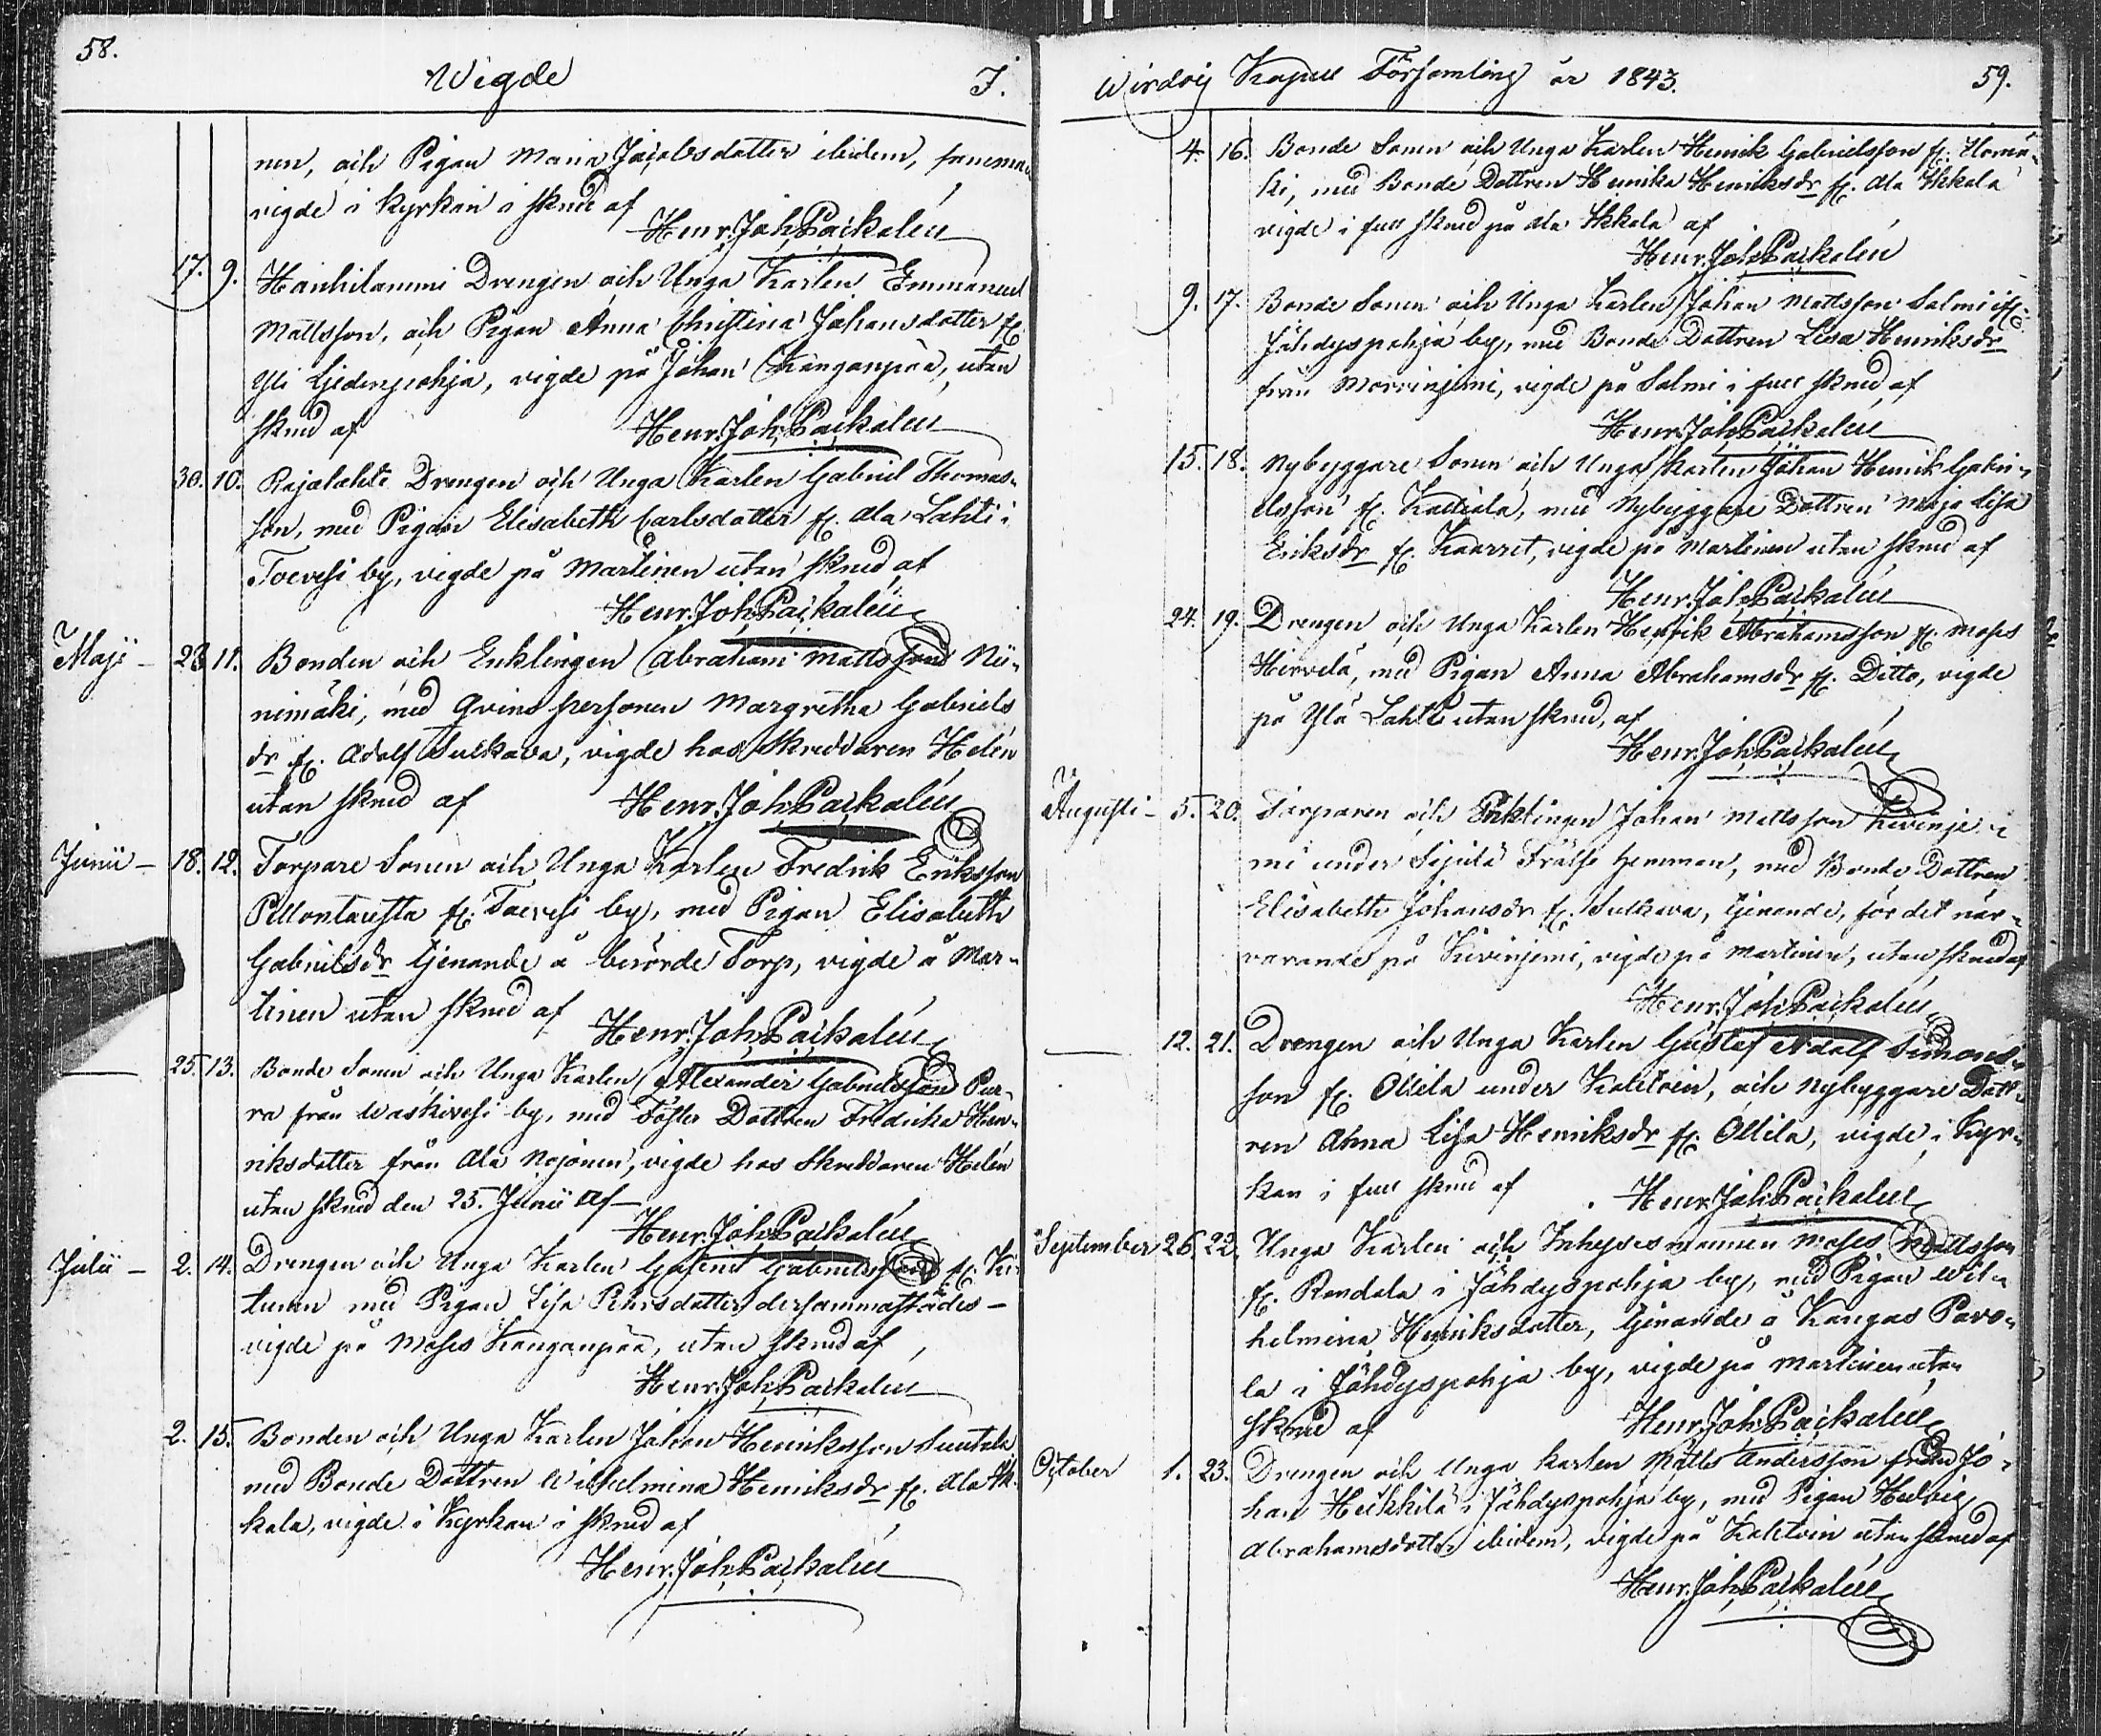 58.
Wigde
I.
nen, och Pigan Maria Jacobsdotter ibidem, samma
vigde i Kyrkan i skrud af
Henr. Joh. Paikalén
17. 9. Hanhilammi Drengen och Unga Karlen Emmanuel
Mattsson, och Pigan Anna Christina Johansdotter fr.
Yli Liedenpohja, vigde på Johan Kanganpää, utan
skrud af
Henr. Joh. Paikalén
30. 10. Rajalahti Drengen och Unga Karlen Gabriel Thomas-
son, med Pigan Elisabeth Carlsdotter fr. Ala Lahti i
Toevesi by, vigde på Martinen utan skrud af
Henr. Joh. Paikalén
Maji – 28. 11. Bonden och Enklingen Abraham Mattsson Nii-
nimäki, med Qvins personen Margretha Gabriels
dr fr. Adolf Sulkava, vigde hos Skreddaren Helén
utan skrud af
Henr. Joh. Paikalén
Junii – 18. 12. Torpare Sonen och Unga Karlen Fredrik Eriksson
fr. Toevesi by, med Pigan Elisabeth
Gabrielsdr tjenande å berörde Torp, vigde å Mar-
tinen utan skrud af
Henr. Joh. Paikalén
— 25. 13. Bonde Sonen och Unga Karlen Alexander Gabrielsson Pur-
ra från Waskivesi by, med Foster Dottren Fredrika Hen-
riksdotter från Ala Nojonen, vigde hos Skreddaren Helén
utan skrud den 25. Junii af –
Henr. Joh. Paikalén
Julii – 2. 14. Drengen och Unga Karlen Gabriel Gabrielsson fr. Ki-
tunen med Pigan Lisa dersammastädes –
vigde på Moses Kanganpää, utan skrud af
Henr. Joh. Paikalén
2. 15. Bonden och Unga Karlen Johan Henriksson Suutala
med Bonde Dottren Wilhelmina Henriksdr fr. Ala Ik-
kala, vigde i Kyrkan i skrud af
Henr. Joh. Paikalén
Wirdois Kapell Församling år 1843.
59.
4. 16. Bonde Sonen och Unga Karlen Henrik Gabrielsson fr.
ki, med Bonde Dottren Henrika Henriksdr fr. Ala Ikkala
vigde i full skrud på Ala Ikkala af
Henr. Joh. Paikalén
9. 17. Bonde Sonen och Unga Karlen Johan Mattsson Salmi
Jähdyspohja by, med Bonde Dottren Lisa Henriksdr
från vigde på Salmi i full skrud af
Henr. Joh. Paikalén
15. 18. Nybyggare Sonen och Unga Karlen Johan Henrik Gabri-
elsson fr. med Nybyggare Dottren Maja Lisa
Eriksdr fr. vigde på Martinen utan skrud af
Henr. Joh. Paikalén
24. 19. Drengen och Unga Karlen Henrik Abrahamsson fr. Moses
Hirvelä, med Pigan Anna Abrahamsdr fr. Ditto, vigde
på Ylä Lahti utan skrud, af
Henr. Joh. Paikalén
Augusti – 5. 20. Torparen och Enklingen Johan Mattsson Kivinje-
mi under Sipilä Frälse hemman, med Bonde Dottren
Elisabeth Johansdr fr. Sulkava, tjenande, för det när-
varande på Kivinjemi, vigde på Martinen, utan skrud af
Henr. Joh. Paikalén
— 12. 21. Drengen och Unga Karlen Gustaf Adolf Simons-
son fr. Ollila under och Nybyggare Dott-
ren Anna Lisa Henriksdr fr. Ollila, vigde i Kyr-
kan i full skrud af
Henr. Joh. Paikalén
September 26. 22. Unga Karlen och Inhysesmannen Moses Mattsson
fr. Randala i Jähdyspohja by, med Pigan Wil-
helmina Henriksdotter, tjenande å Kangas Pavo-
la i Jähdyspohja by, vigde på Martinen utan
skrud af
Henr. Joh. Paikalén
October 1. 23. Drengen och Unga Karlen Matts Andersson från Jo-
han Heikkilä i Jähdyspohja by, med Pigan Hedvig
Abrahamsdotter ibidem, vigde på utan skrud af
Henr. Joh. Paikalén